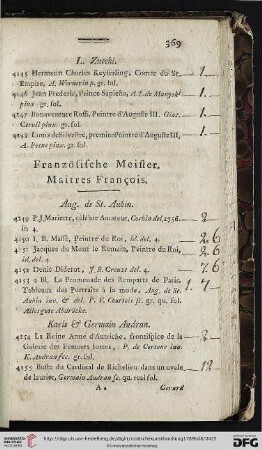 369
L. Zucchi.
4145 Hermann Charles Keyserling, Comte du St. 1
Empire, A. Wernerin p. gr. fol.
4146 Jean Frederic, Prince Sapieha, A. L. de
pinx gr. fol. 1
4147 Bonaventure Rossi, Peintre d'Auguste III. Giac.
Ceruti pinx. gr. fol. 1
4148 Louis de Silvestre, premier Peintre d'Auguste III,
A. Pesne pinx. gr. fol. 1
Französische Meister.
Maitres François.
Aug. de St. Aubin.
4149 P. J. Mariette, célèbre Amateur, Cochin del. 1756. 2
in 4.
4150 J. B. Massé, Peintre du Roi, id. del. 4. 2 6
4151 Jacques du Mont le Romain, Peintre du Roi, 2 6
id. del. 4.
4152 Denis Diderot, J. B. Greuze del. 4. 7 6
4153 2 Bl. La Promenade des Remparts de Paris. 1. 7
Tableaux des Portraits à la mode. Aug. de St.
Aubin inv. & del. P. F. Courtois sc. gr. qu. fol.
Allergute Abdrücke.
Karls & Germain Audran.
4154 La Reine Anne d'Autriche, frontispice de la 2
Galerie des Femmes fortes, P. de Cortone inv.
K. Audran sc. gr. fol.
4155 Buste du Cardinal de Richelieu dans un ovale 12
de laurier, Germain Audran sc. qu. roial fol.
A a Gerard
http://digi.ub.uni-heidelberg.de/diglit/
© Universitätsbibliothek Heidelberg
gefördert durch die
DFG